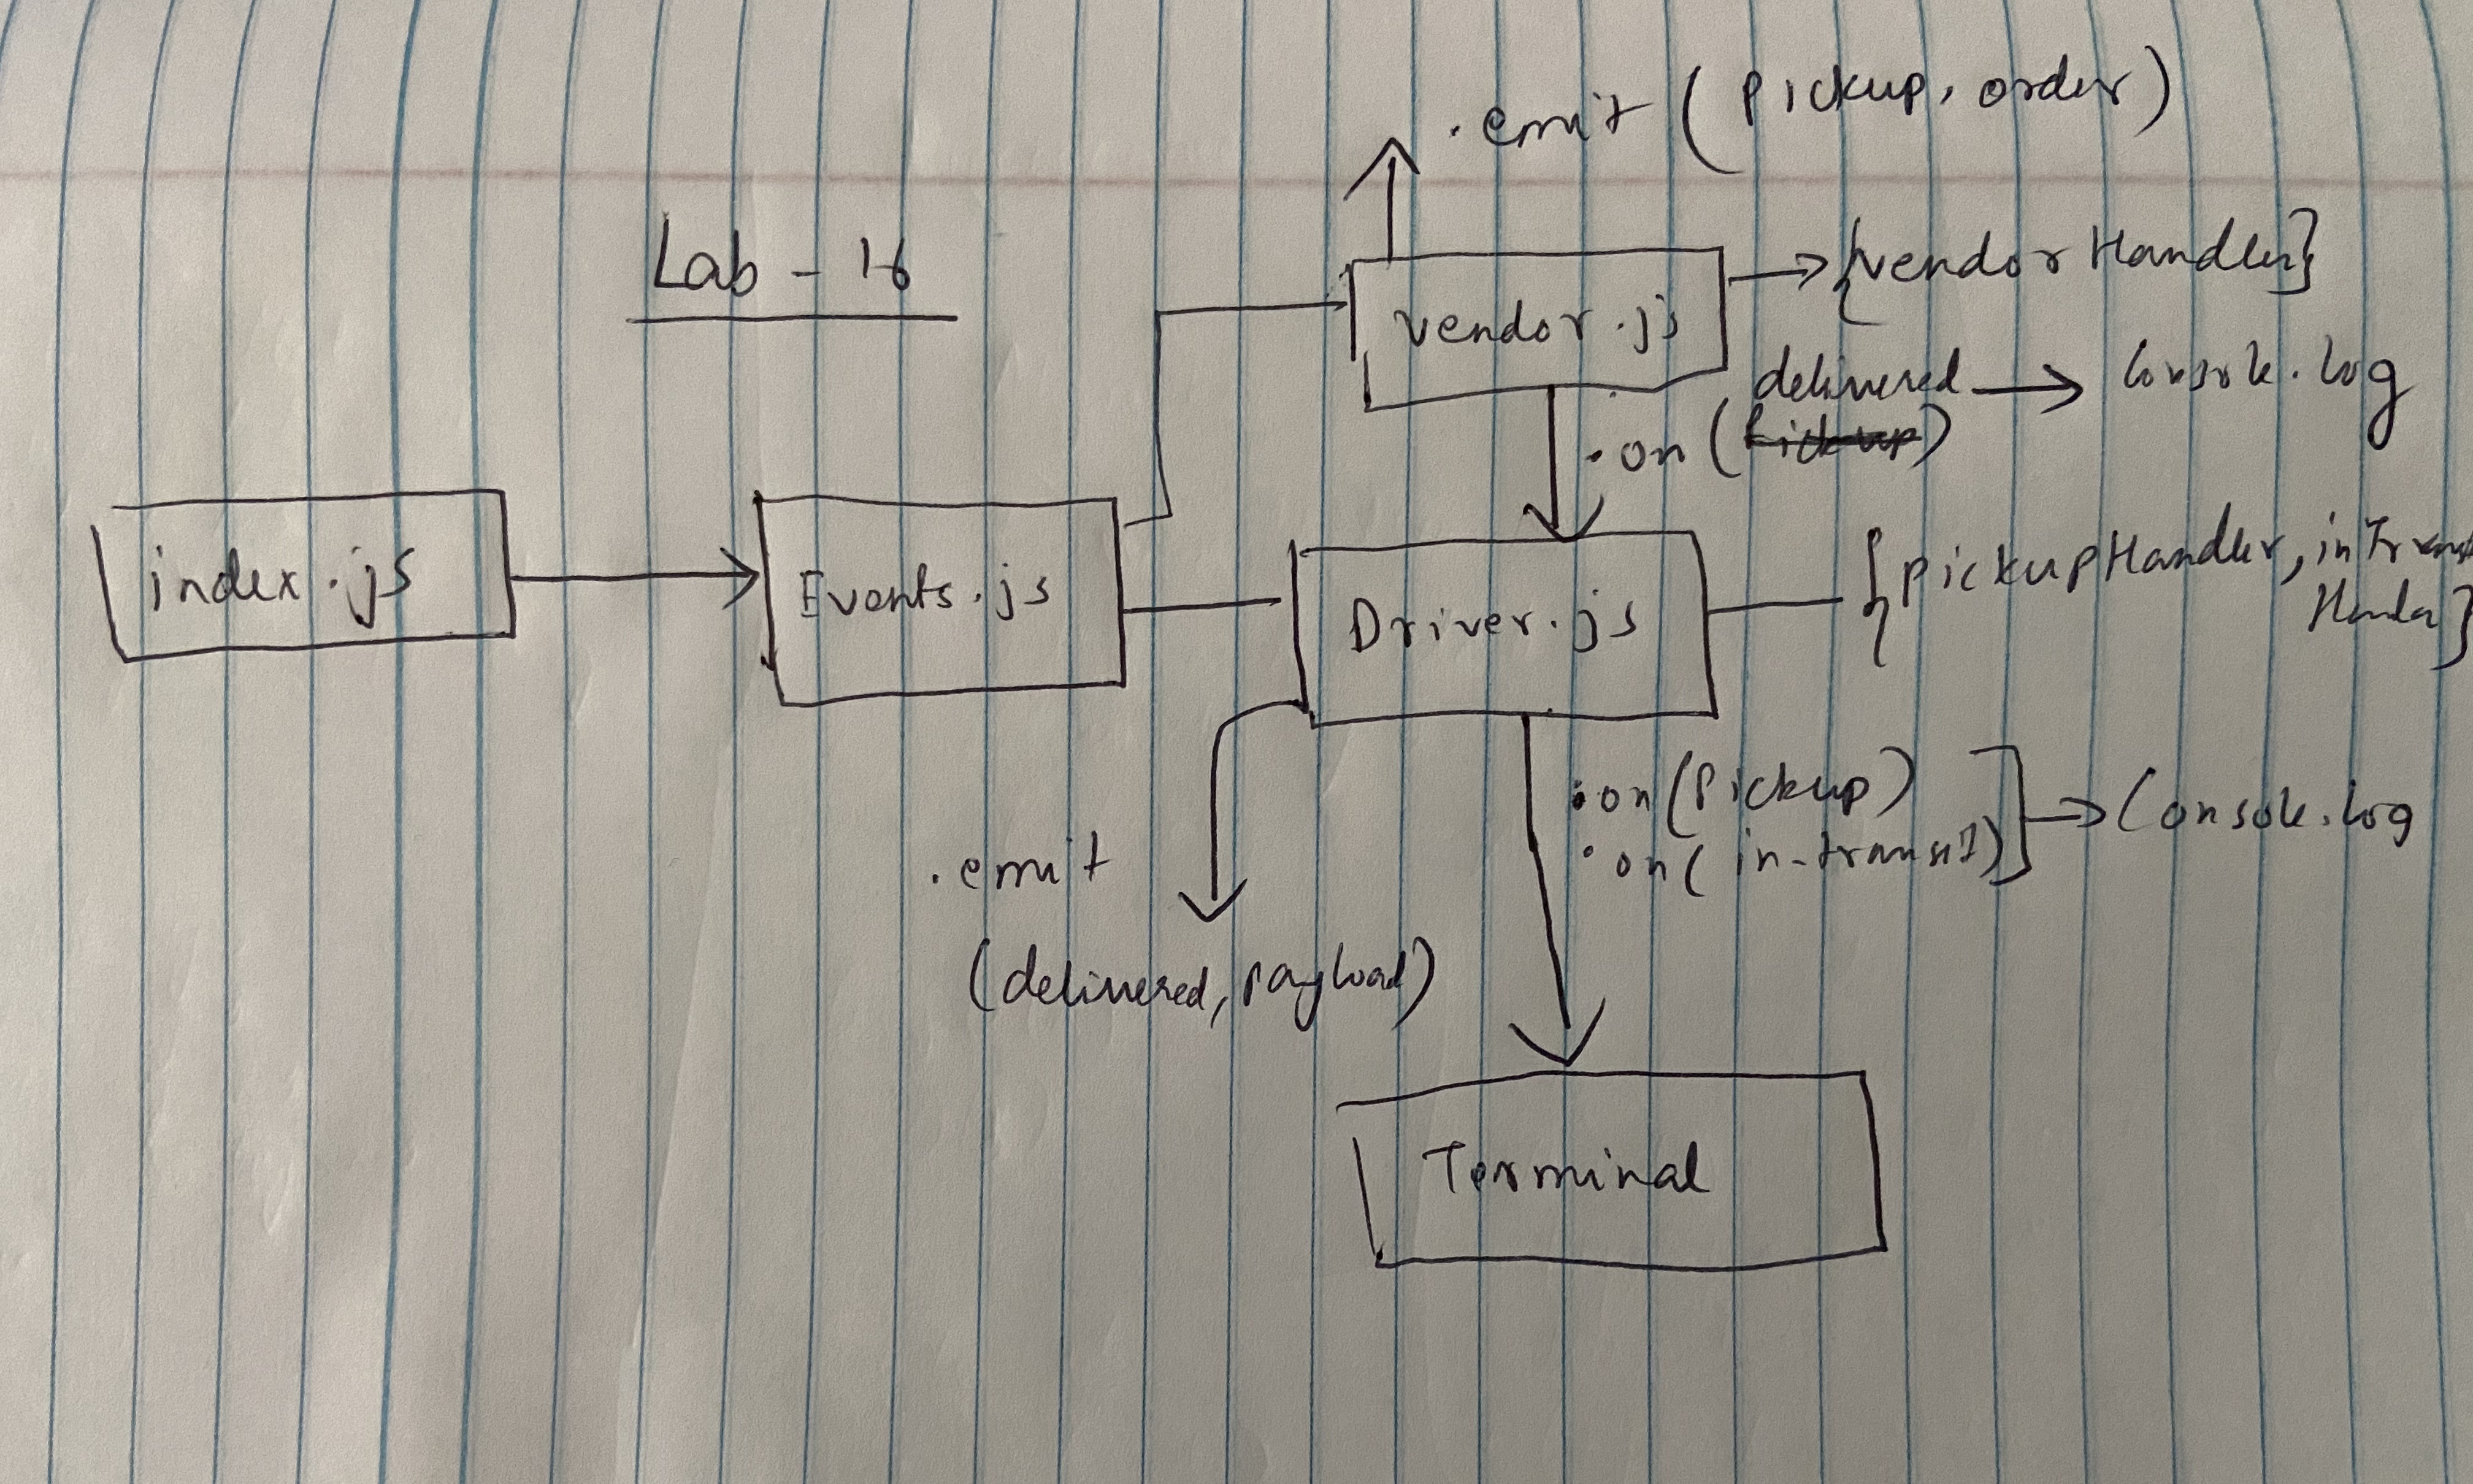 .emit (pickup, order)
Lab - 16
{vendorHandler}
vendor.js
delivered → console.log
.on (pickup)
index.js
Events.js
Driver.js
{pickupHandler, inTransit
Handler}
.on (Pickup)
.on (in-transit)
Console.log
.emit
(delivered, payload)
Terminal